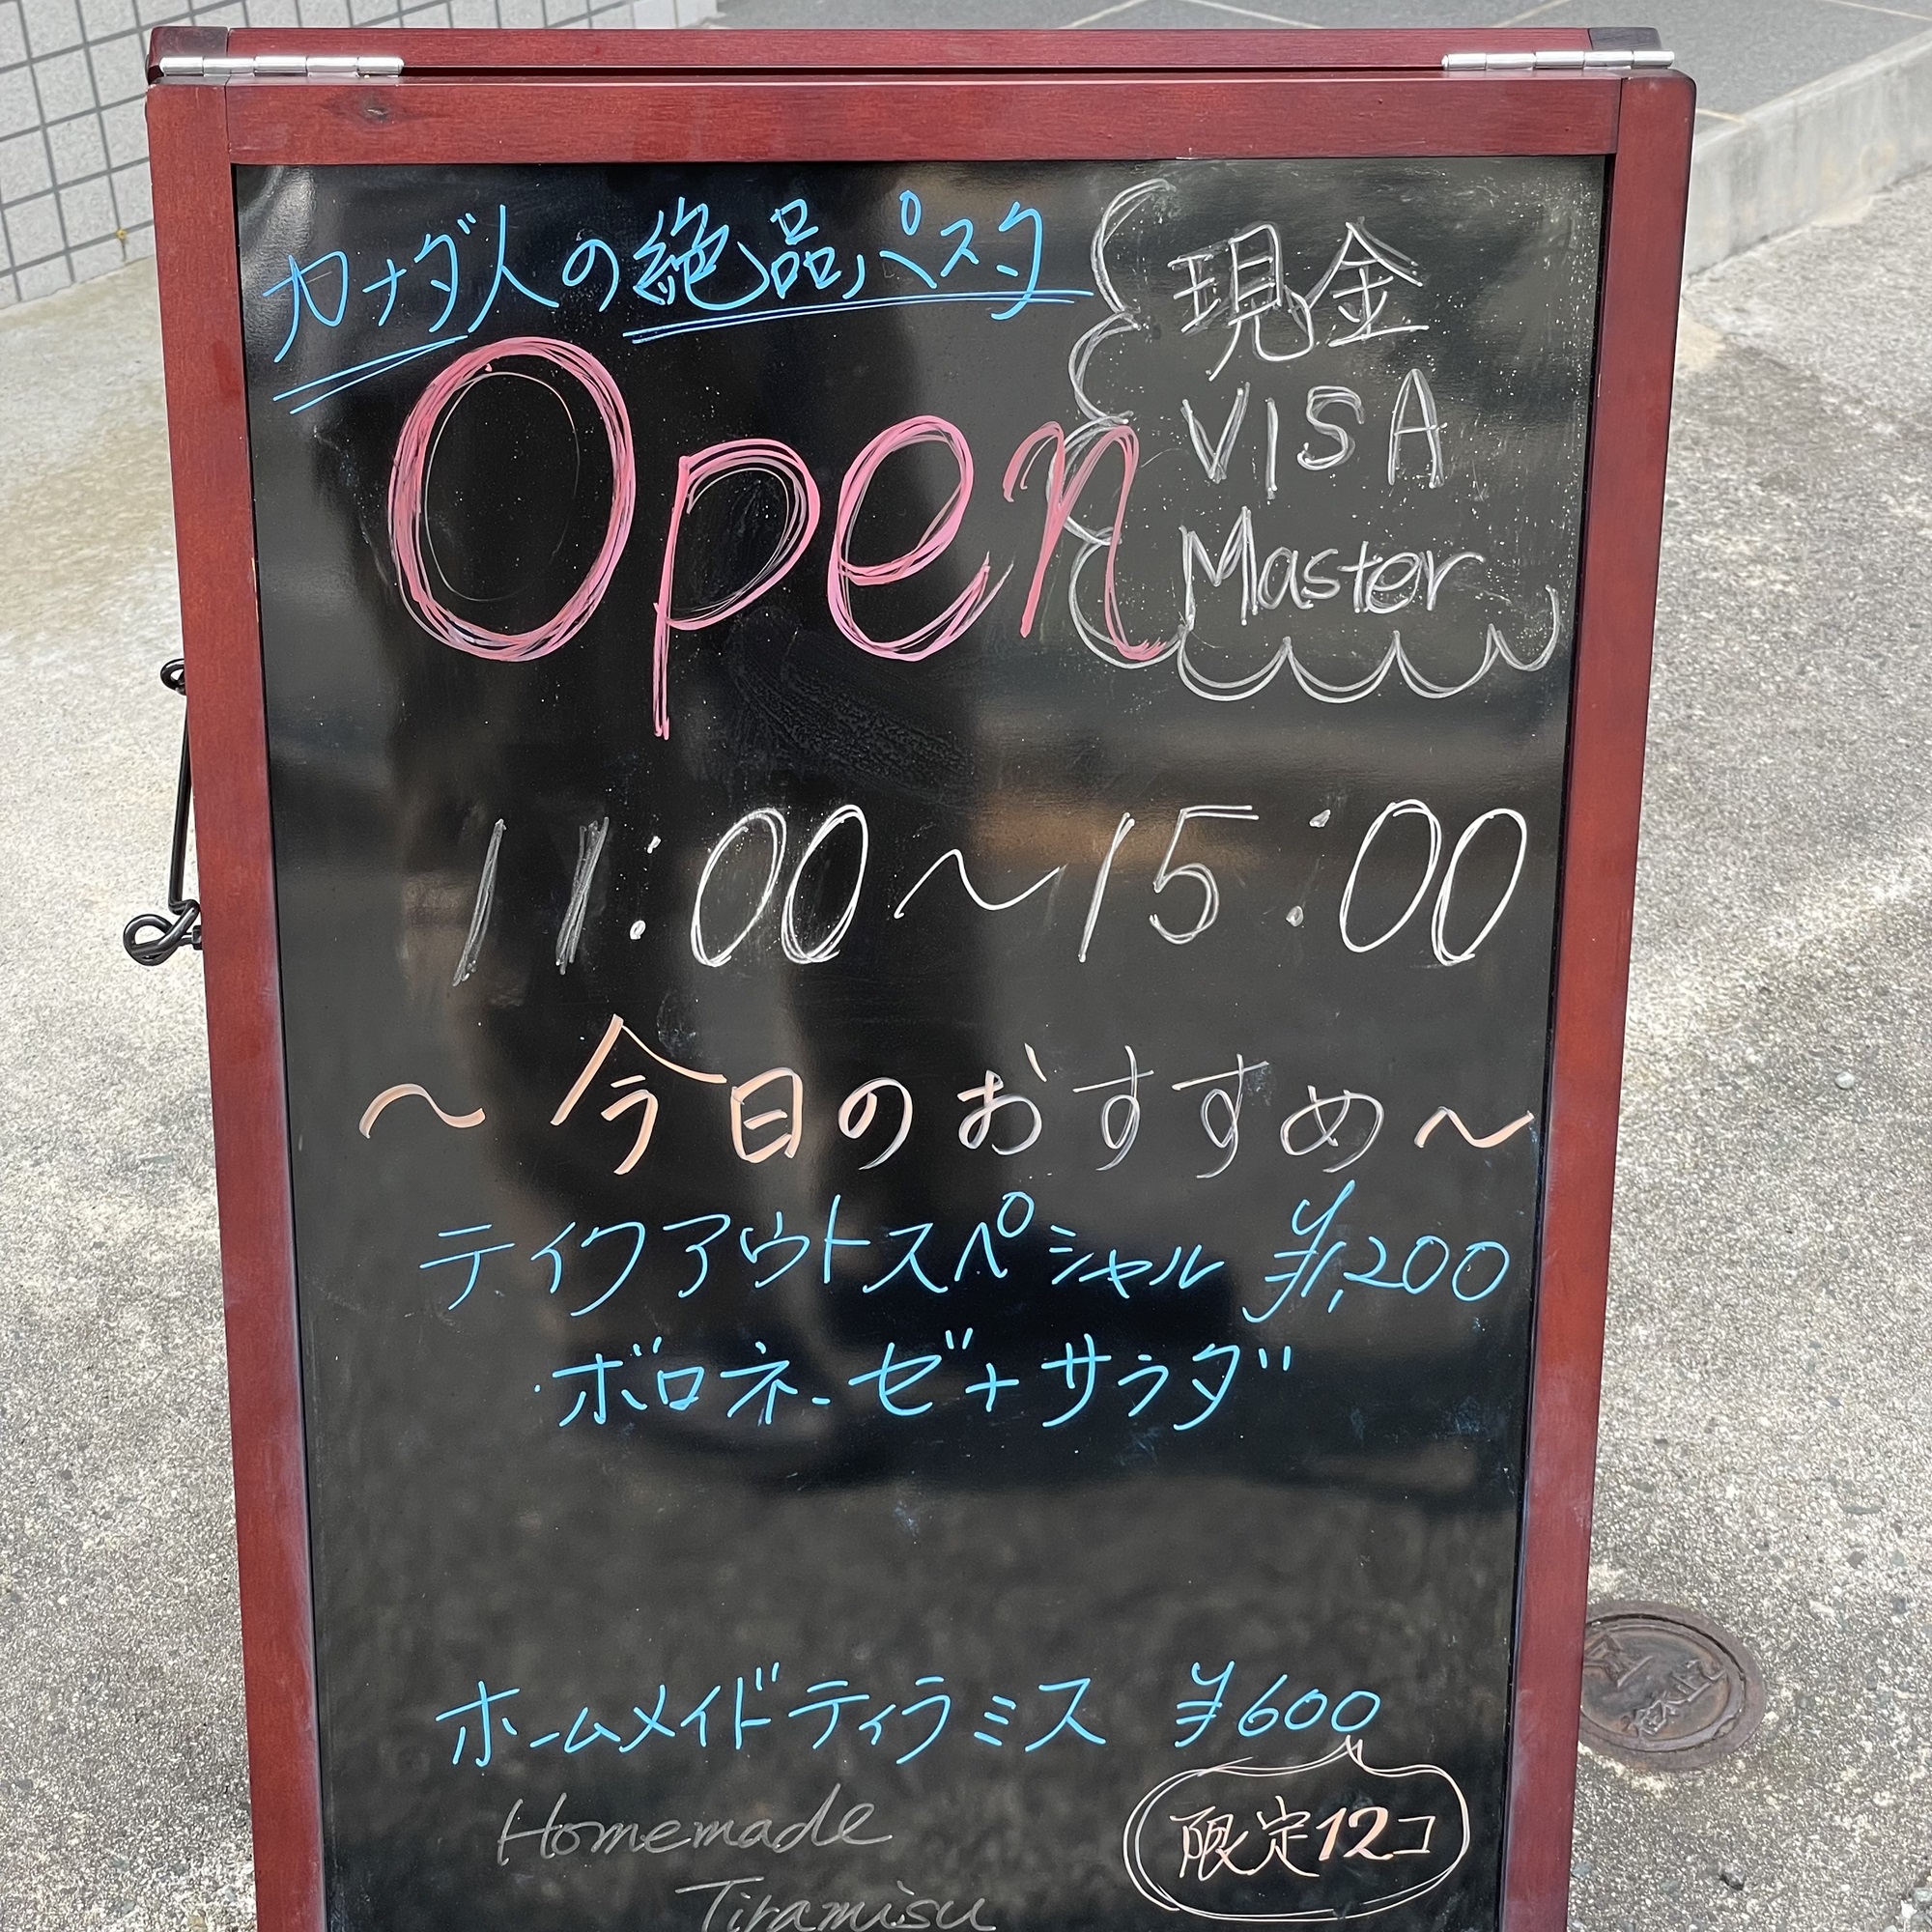 カナダ人の絶品パスタ
Open
現金
VISA
Master
11:00～15:00
～今日のおすすめ～
テイクアウトスペシャル ¥1,200
・ボロネーゼ+サラダ
ホームメイドティラミス ¥600
Homemade
Tiramisu
限定12コ